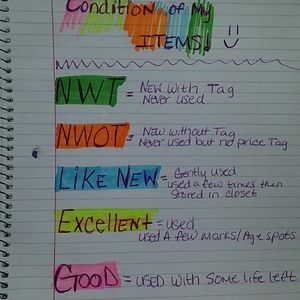 Condition of My
ITEMS! :)
NWT = New with Tag
Never used.
NWOT = New without Tag
Never used but no price Tag
Like New = Gently used
used a few times then
stored in closet
Excellent = used
used A few marks/Age spots
GOOD = USED with Some life left